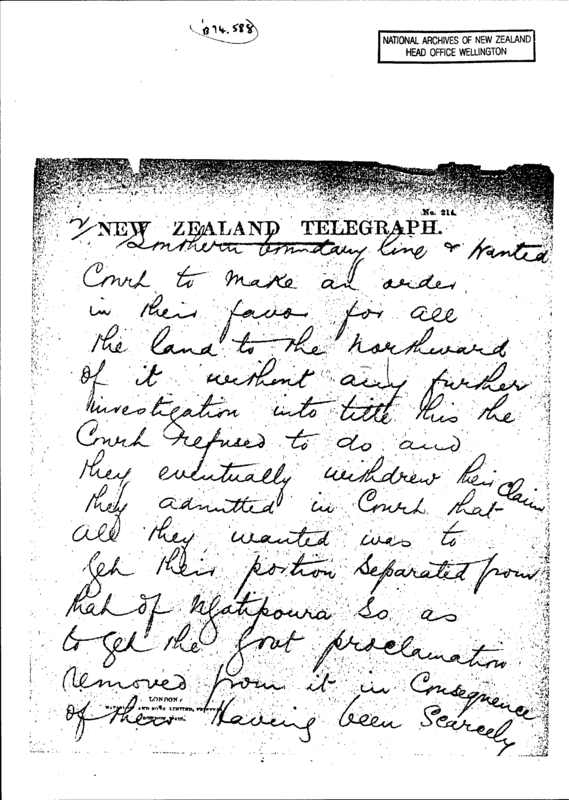 B74.588
NATIONAL ARCHIVES OF NEW ZEALAND
HEAD OFFICE WELLINGTON
No. 214.
2/ NEW ZEALAND TELEGRAPH.
Southern boundary line & wanted
Court to make an order
in their favor for all
the land to the northward
of it without any further
investigation into title this the
Court refused to do and
they eventually withdrew their claim
they admitted in Court that
all they wanted was to
get their portion separated from
that of Ngatipoura so as
to get the Govt proclamation
removed from it in consequence
LONDON:
AND SONS LIMITED,
of their having been scarcely